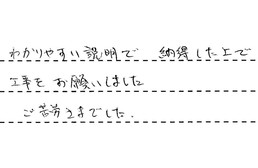 わかりやすい説明で 納得した上で
工事をお願いしました
ご苦労さまでした.